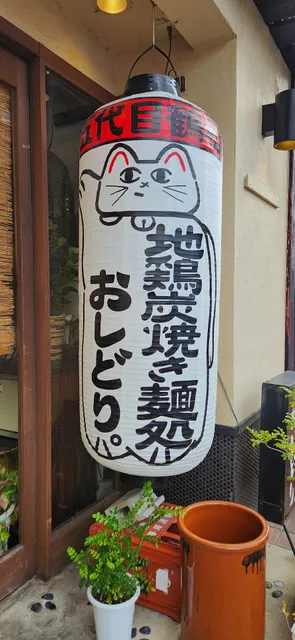 五代目鶴
地鶏炭焼き麺処
おしどり。